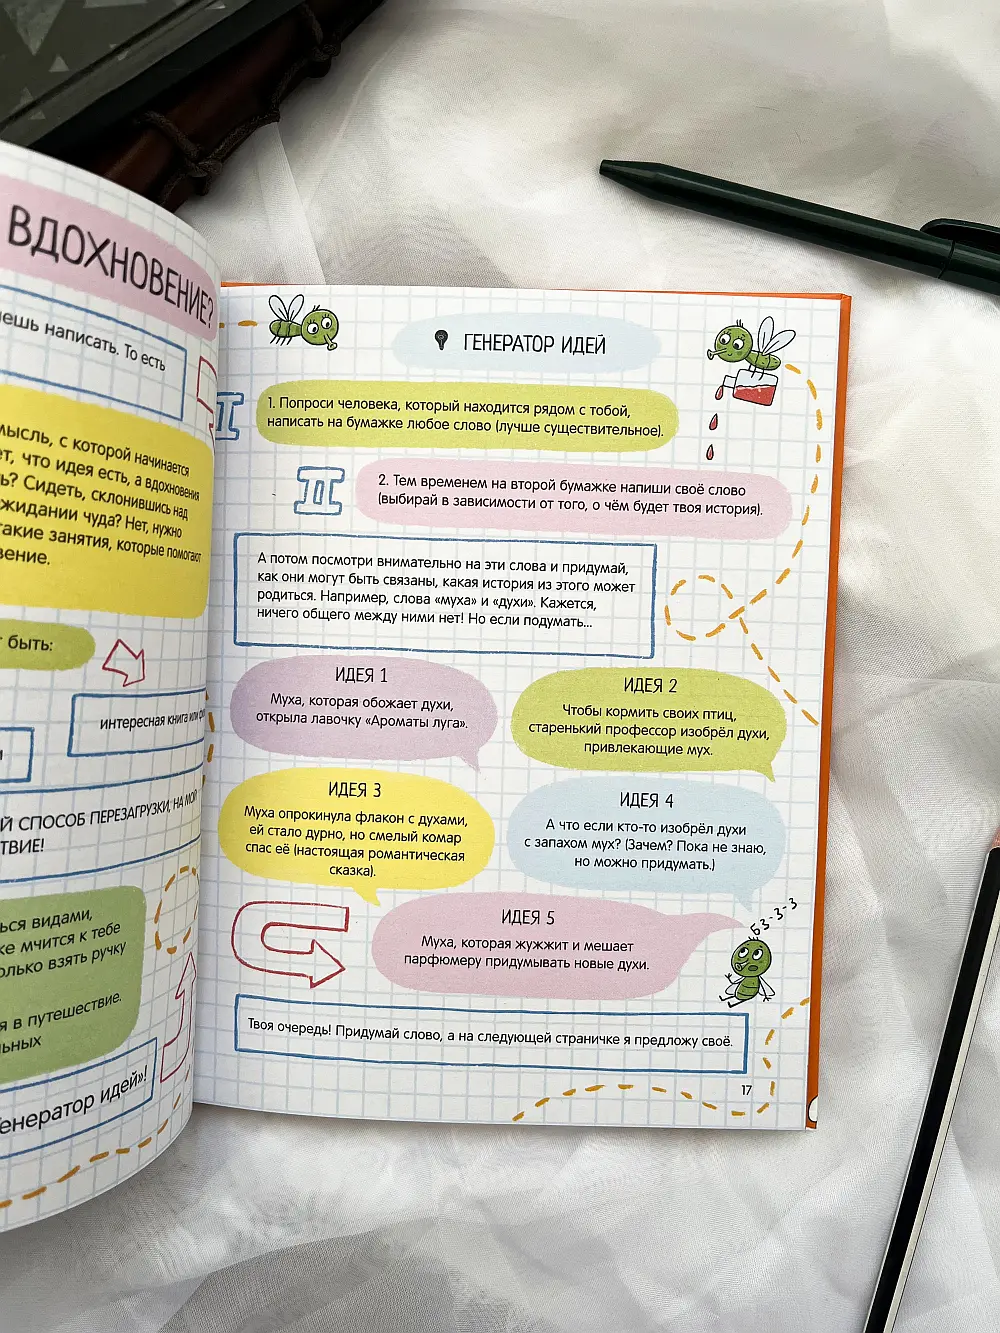 ВДОХНОВЕНИЕ?
написать. То есть
мысль, с которой начинается
что идея есть, а вдохновения
Сидеть, склонившись над
ожидании чуда? Нет, нужно
такие занятия, которые помогают
быть:
интересная книга или
СПОСОБ ПЕРЕЗАГРУЗКИ, НА МОЙ
видами,
мчится к тебе
только взять ручку
я в путешествие.
Генератор идей»!
ГЕНЕРАТОР ИДЕЙ
I
1. Попроси человека, который находится рядом с тобой,
написать на бумажке любое слово (лучше существительное).
II
2. Тем временем на второй бумажке напиши своё слово
(выбирай в зависимости от того, о чём будет твоя история).
А потом посмотри внимательно на эти слова и придумай,
как они могут быть связаны, какая история из этого может
родиться. Например, слова «муха» и «духи». Кажется,
ничего общего между ними нет! Но если подумать...
ИДЕЯ 1
Муха, которая обожает духи,
открыла лавочку «Ароматы луга».
ИДЕЯ 2
Чтобы кормить своих птиц,
старенький профессор изобрёл духи,
привлекающие мух.
ИДЕЯ 3
Муха опрокинула флакон с духами,
ей стало дурно, но смелый комар
спас её (настоящая романтическая
сказка).
ИДЕЯ 4
А что если кто-то изобрёл духи
с запахом мух? (Зачем? Пока не знаю,
но можно придумать.)
ИДЕЯ 5
Муха, которая жужжит и мешает
парфюмеру придумывать новые духи.
Бз-з-з
Твоя очередь! Придумай слово, а на следующей страничке я предложу своё.
17